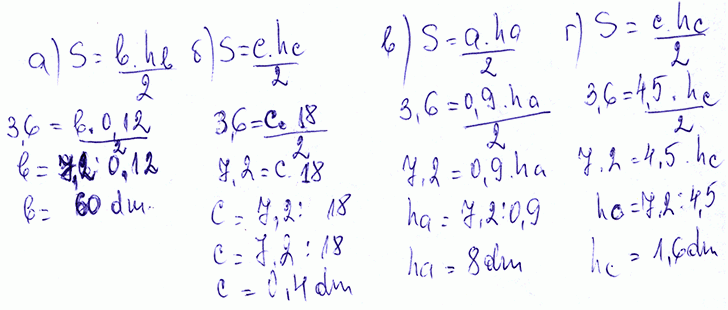 а) S = b.hb / 2
3,6 = b.0,12 / 2
b = 7,2 : 0,12
b = 60 dm.
б) S = c.hc / 2
3,6 = c. 18 / 2
7,2 = c. 18
c = 7,2 : 18
c = 7,2 : 18
c = 0,4 dm
в) S = a.ha / 2
3,6 = 0,9.ha / 2
7,2 = 0,9.ha
ha = 7,2:0,9
ha = 8dm
г) S = c.hc / 2
3,6 = 4,5.hc / 2
7,2 = 4,5.hc
hc = 7,2:4,5
hc = 1,6dm